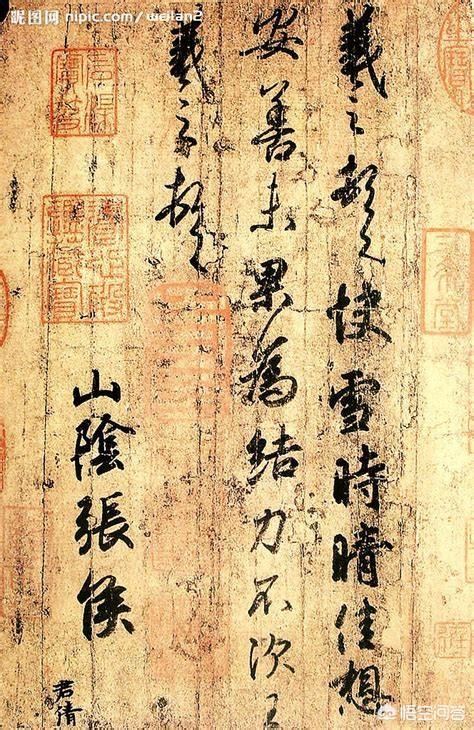 昵图网 nipic.com/weilan2
羲之頓首快雪時晴佳想
安善未果為結力不次王
羲之頓首
山陰張侯
君倩
三希堂
悟空问答